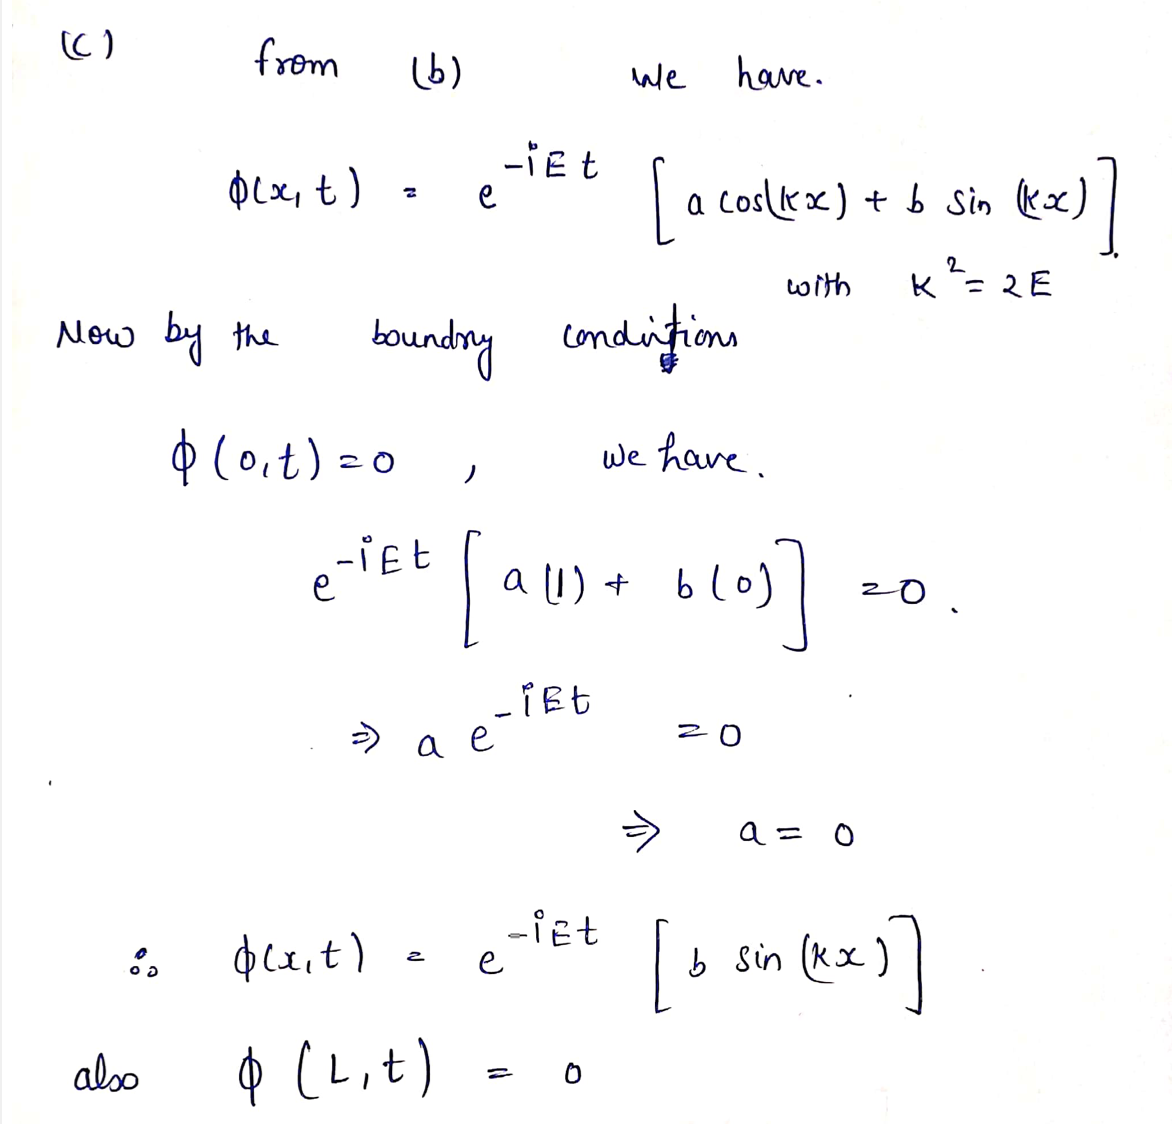 (c) from (b) we have.
ϕ(x,t) = e^{-iEt} [a cos(kx) + b sin (kx)].
with k^2 = 2E
Now by the boundry conditions
ϕ(0,t) = 0 , we have.
e^{-iEt} [a(1) + b(0)] = 0.
⇒ a e^{-iEt} = 0
⇒ a = 0
∴ ϕ(x,t) = e^{-iEt} [b sin (kx)]
also ϕ(L,t) = 0